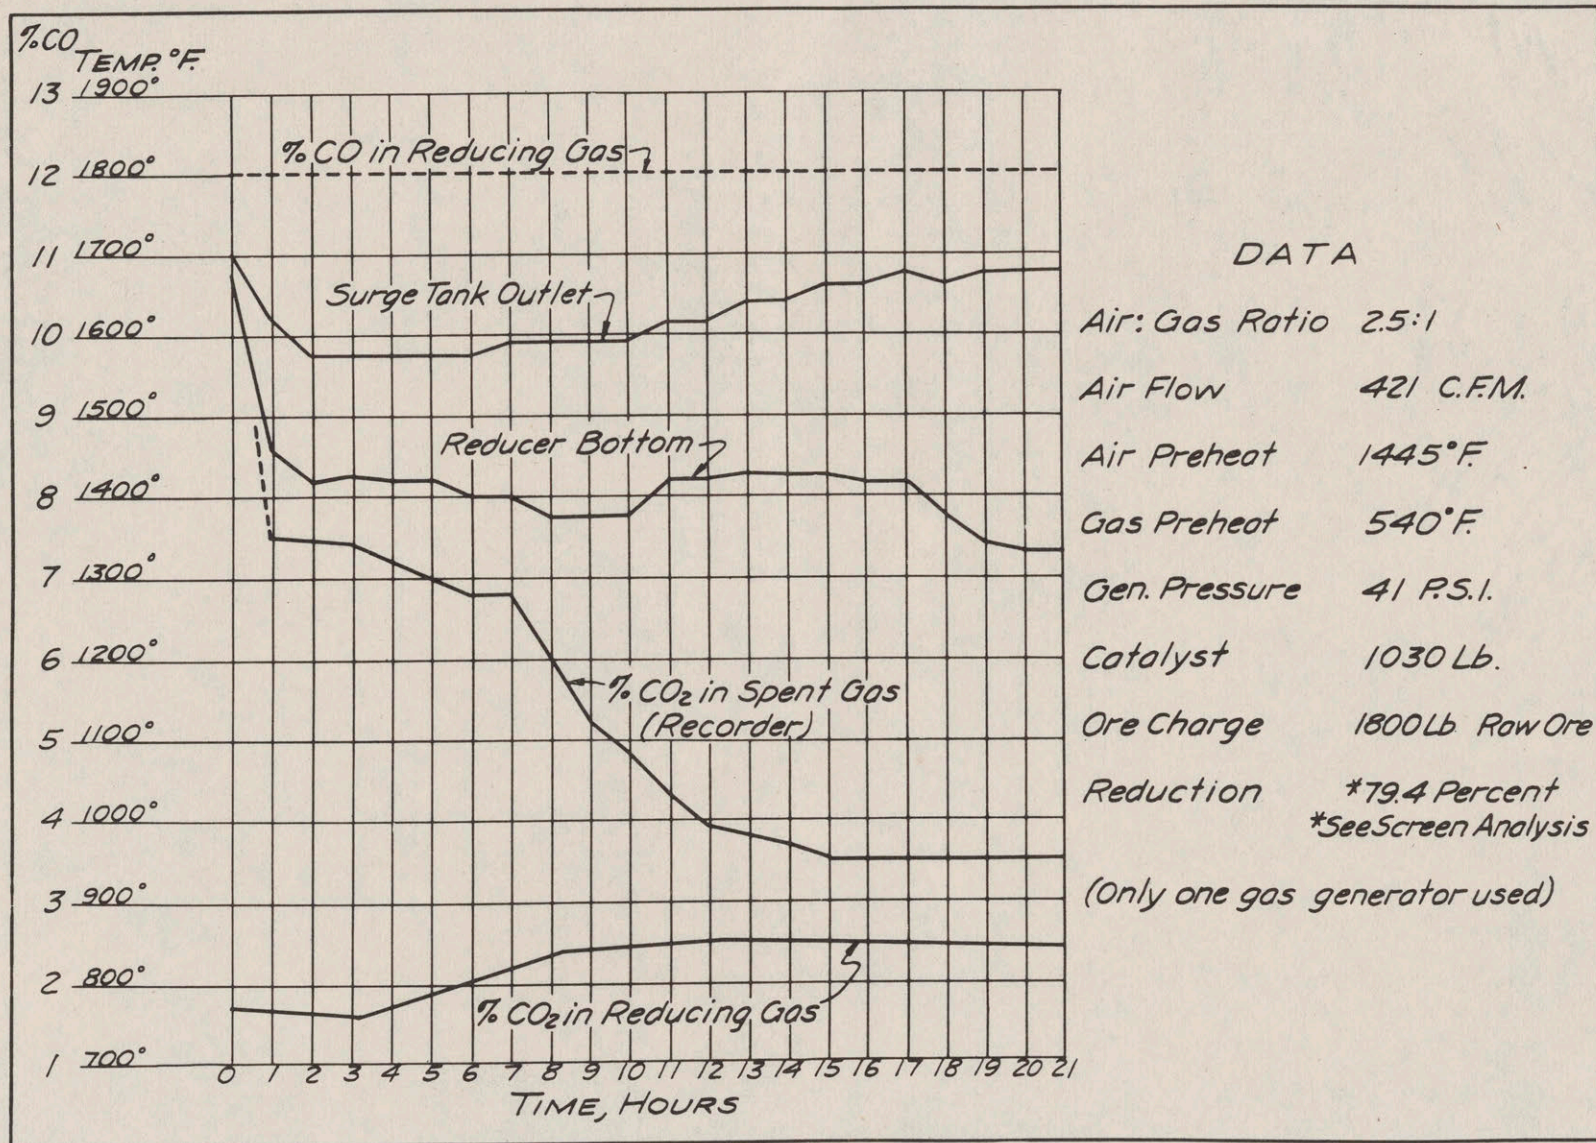 %CO
TEMP. °F.
13 1900°
12 1800°
11 1700°
10 1600°
9 1500°
8 1400°
7 1300°
6 1200°
5 1100°
4 1000°
3 900°
2 800°
1 700°
% CO in Reducing Gas
Surge Tank Outlet
Reducer Bottom
% CO₂ in Spent Gas
(Recorder)
% CO₂ in Reducing Gas
0 1 2 3 4 5 6 7 8 9 10 11 12 13 14 15 16 17 18 19 20 21
TIME, HOURS
DATA
Air: Gas Ratio 2.5:1
Air Flow 421 C.F.M.
Air Preheat 1445°F.
Gas Preheat 540°F.
Gen. Pressure 41 P.S.I.
Catalyst 1030 Lb.
Ore Charge 1800 Lb Raw Ore
Reduction *79.4 Percent
*See Screen Analysis
(Only one gas generator used)